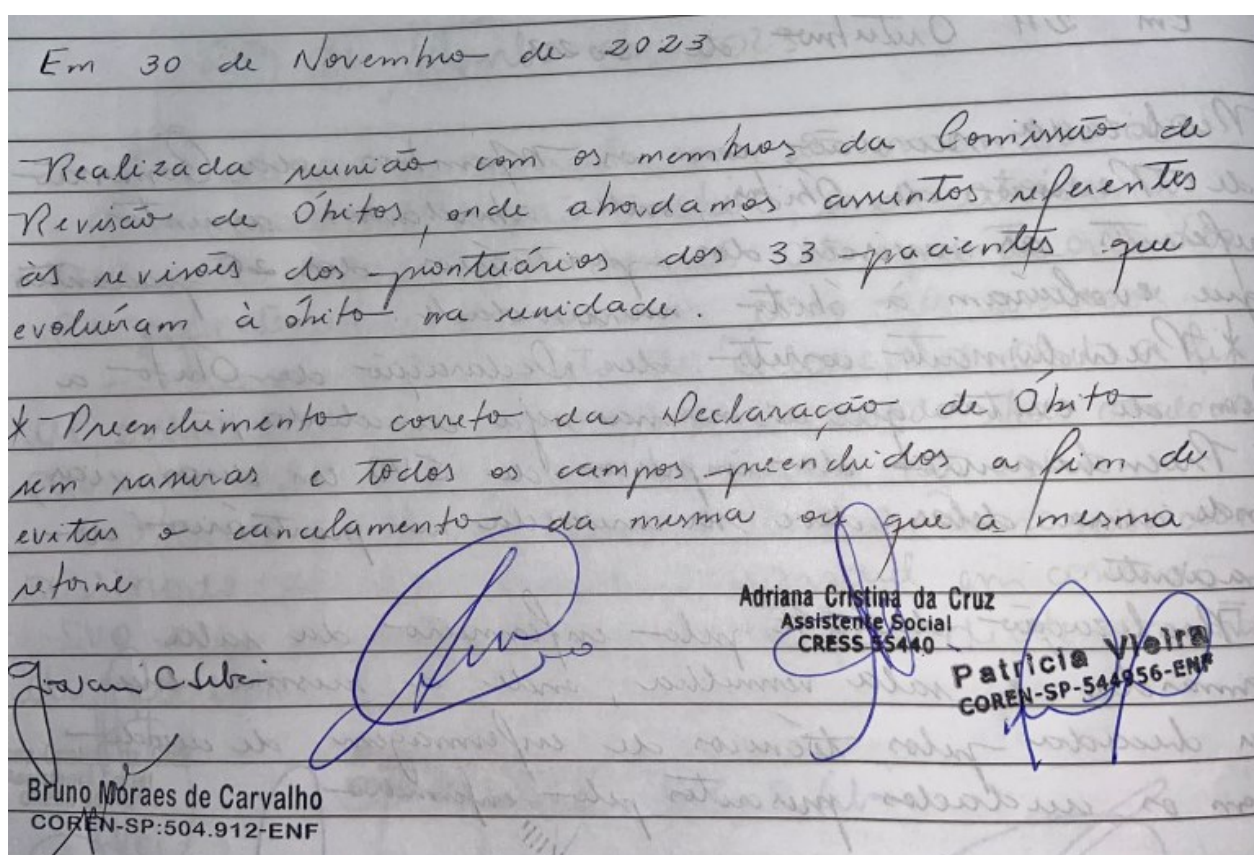 Em 30 de Novembro de 2023
Realizada reunião com os membros da Comissão de
Revisão de Óbitos, onde abordamos assuntos referentes
às revisões dos prontuários dos 33 pacientes que
evoluíram à óbito na unidade.
* Preenchimento correto da Declaração de Óbito
sem rasuras e todos os campos preenchidos a fim de
evitar o cancelamento da mesma ou que a mesma
retorne
Adriana Cristina da Cruz
Assistente Social
CRESS 55440
Patricia Vieira
COREN-SP-544956-ENF
Bruno Moraes de Carvalho
COREN-SP:504.912-ENF